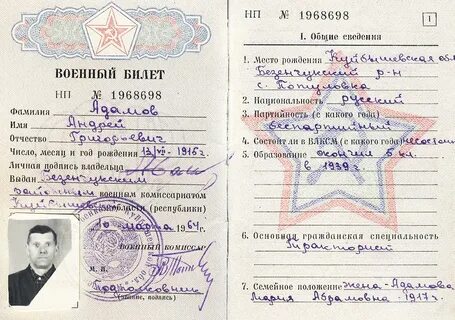 ВОЕННЫЙ БИЛЕТ
НП № 1968698
Фамилия Адамов
Имя Андрей
Отчество Григорьевич
Число, месяц и год рождения 1916 г.
Личная подпись владельца
Выдан Безенчукским
районным военным комиссариатом
Куйбышевской области (республики)
марта 1964 г.
Военный комиссар
м. п.
Подполковник
(звание, подпись)
НП № 1968698
1
I. Общие сведения
1. Место рождения Куйбышевская обл
Безенчукский р-н
с.
2. Национальность русский
3. Партийность (с какого года)
беспартийный
4. Состоит ли в ВЛКСМ (с какого года)
5. Образование окончил 5 кл.
в 1939 г.
6. Основная гражданская специальность
Тракторист
7. Семейное положение жена-Адамова
Мария Абрамовна-1917 г.